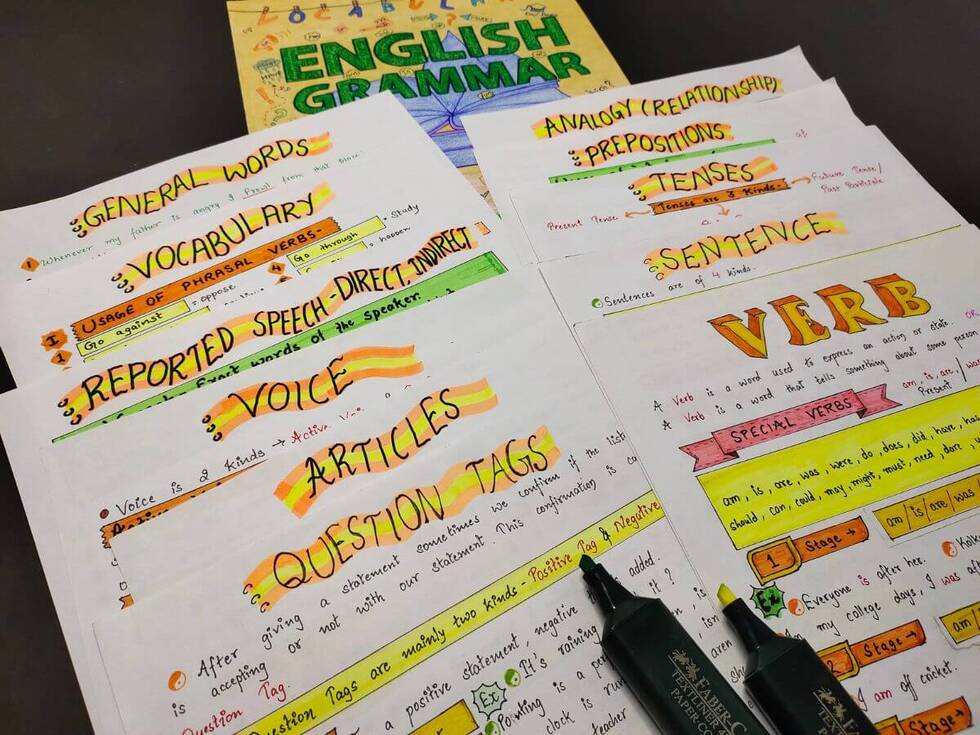 VOCABULARY
ENGLISH
GRAMMAR
GENERAL WORDS
Whenever my father is angry I Prowl from that place
VOCABULARY
USAGE OF PHRASAL VERBS-
I
1 Go against = oppose
4 Go through = study
= happen
REPORTED SPEECH - DIRECT, INDIRECT
Exact words of the speaker.
VOICE
Voice is 2 kinds → Active
ARTICLES
QUESTION TAGS
After giving a statement sometimes we confirm if the list
accepting or not with our statement. This confirmation is ca
is Question Tag.
Question Tags are mainly two kinds - Positive Tag & Negative
a positive statement, negative added.
Ex It's raining it?
Pointing is a per
clock is run
teacher
ANALOGY (RELATIONSHIP)
PREPOSITIONS
TENSES
Tenses are 3 kinds.
Present Tense
Future Tense/
Past Participle
SENTENCE
Sentences are of 4 kinds.
VERB
A Verb is a word used to express an action or state. OR
A Verb is a word that tells something about some person
SPECIAL VERBS
am, is, are
Present
was
am, is, are, was, were, do, does, did, have, has
should, can, could, may, might, must, need, dare
1 Stage →
am/is/are/was
Ex Everyone is after her.
Kolka
In my college days, I was af
2 Stage →
am
I am off cricket.
Stage →
FABER-C
TEXTLINER 4
PAPER-CO
FABER
TEXTLIN
PAPER